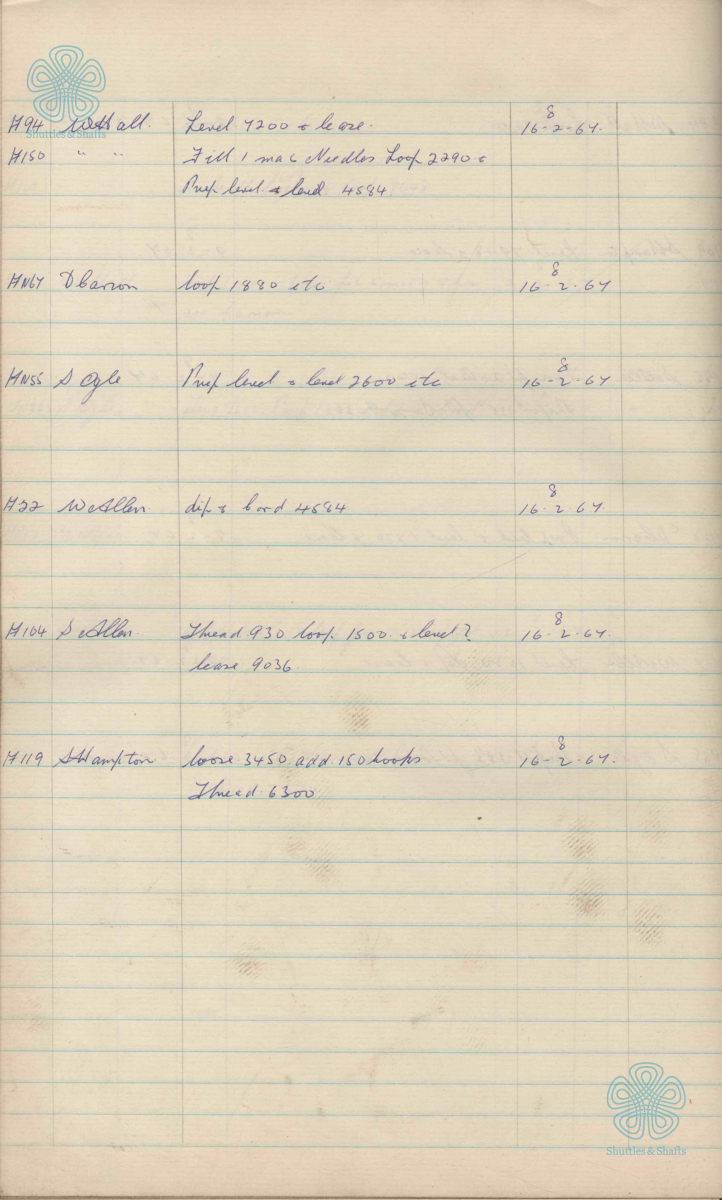 8
H94 W Hall. Level 7200 & lease. 16-2-67.
H150 " " Fill 1 mac Needles Loop 2290 &
Prep level & level 4584
8
HN67 D Carson loop 1880 etc 16-2-67
8
HN55 S Ogle Prep level & level 2600 etc 16-2-67
8
H22 W Allen dip & 4584 16-2 67.
8
H104 S Allen. Thread 930 loop 1500 & level ? 16-2-67.
lease 9036.
8
H119 S Hampton loose 3450 add 150 hooks 16-2-67.
Thread 6300
Shuttles & Shafts
Shuttles & Shafts